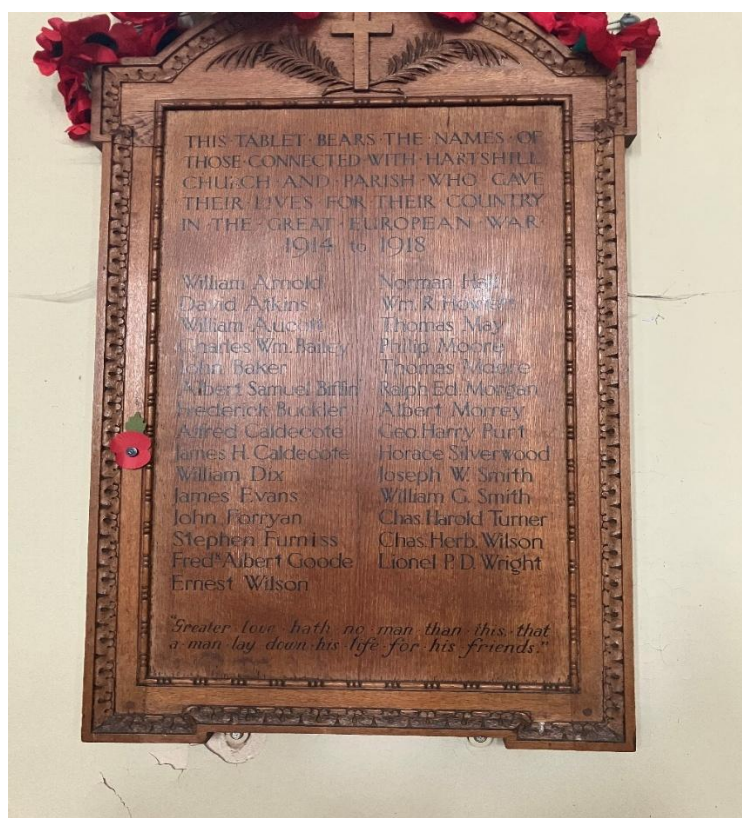 THIS·TABLET·BEARS·THE·NAMES·OF
THOSE·CONNECTED·WITH·HARTSHILL
CHURCH·AND·PARISH·WHO·GAVE
THEIR·LIVES·FOR·THEIR·COUNTRY
IN·THE·GREAT·EUROPEAN·WAR
1914 to 1918
William Arnold
David Atkins
William Aucott
Charles Wm. Bailey
John Baker
Albert Samuel Biffin
Frederick Buckler
Alfred Caldecote
James H. Caldecote
William Dix
James Evans
John Forryan
Stephen Furniss
Fredk Albert Goode
Ernest Wilson
Norman
Wm. R.
Thomas May
Philip Moore
Thomas Moore
Ralph Ed. Morgan
Albert Morrey
Geo. Harry Purt
Horace Silverwood
Joseph W. Smith
William G. Smith
Chas. Harold Turner
Chas. Herb. Wilson
Lionel P. D. Wright
"Greater·love·hath·no·man·than·this·that
a·man·lay·down·his·life·for·his·friends."